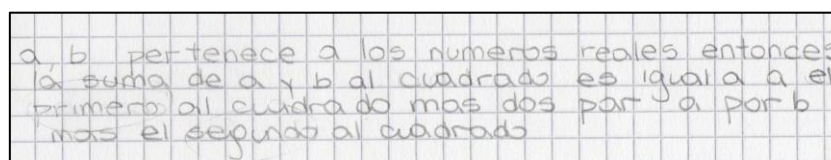 a, b pertenece a los numeros reales entonces
la suma de a y b al cuadrado es igual a a el
primero al cuadrado mas dos par a por b
mas el segundo al cuadrado